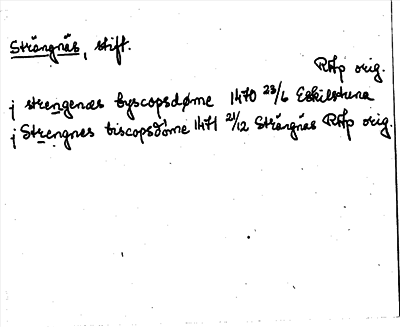 Strängnäs, stift.
RAp orig.
j strengenæs byscopsdøme 1470 23/6 Eskilstuna
j Strengnes biscopsdøme 1471 21/12 Strängnäs RAp orig.